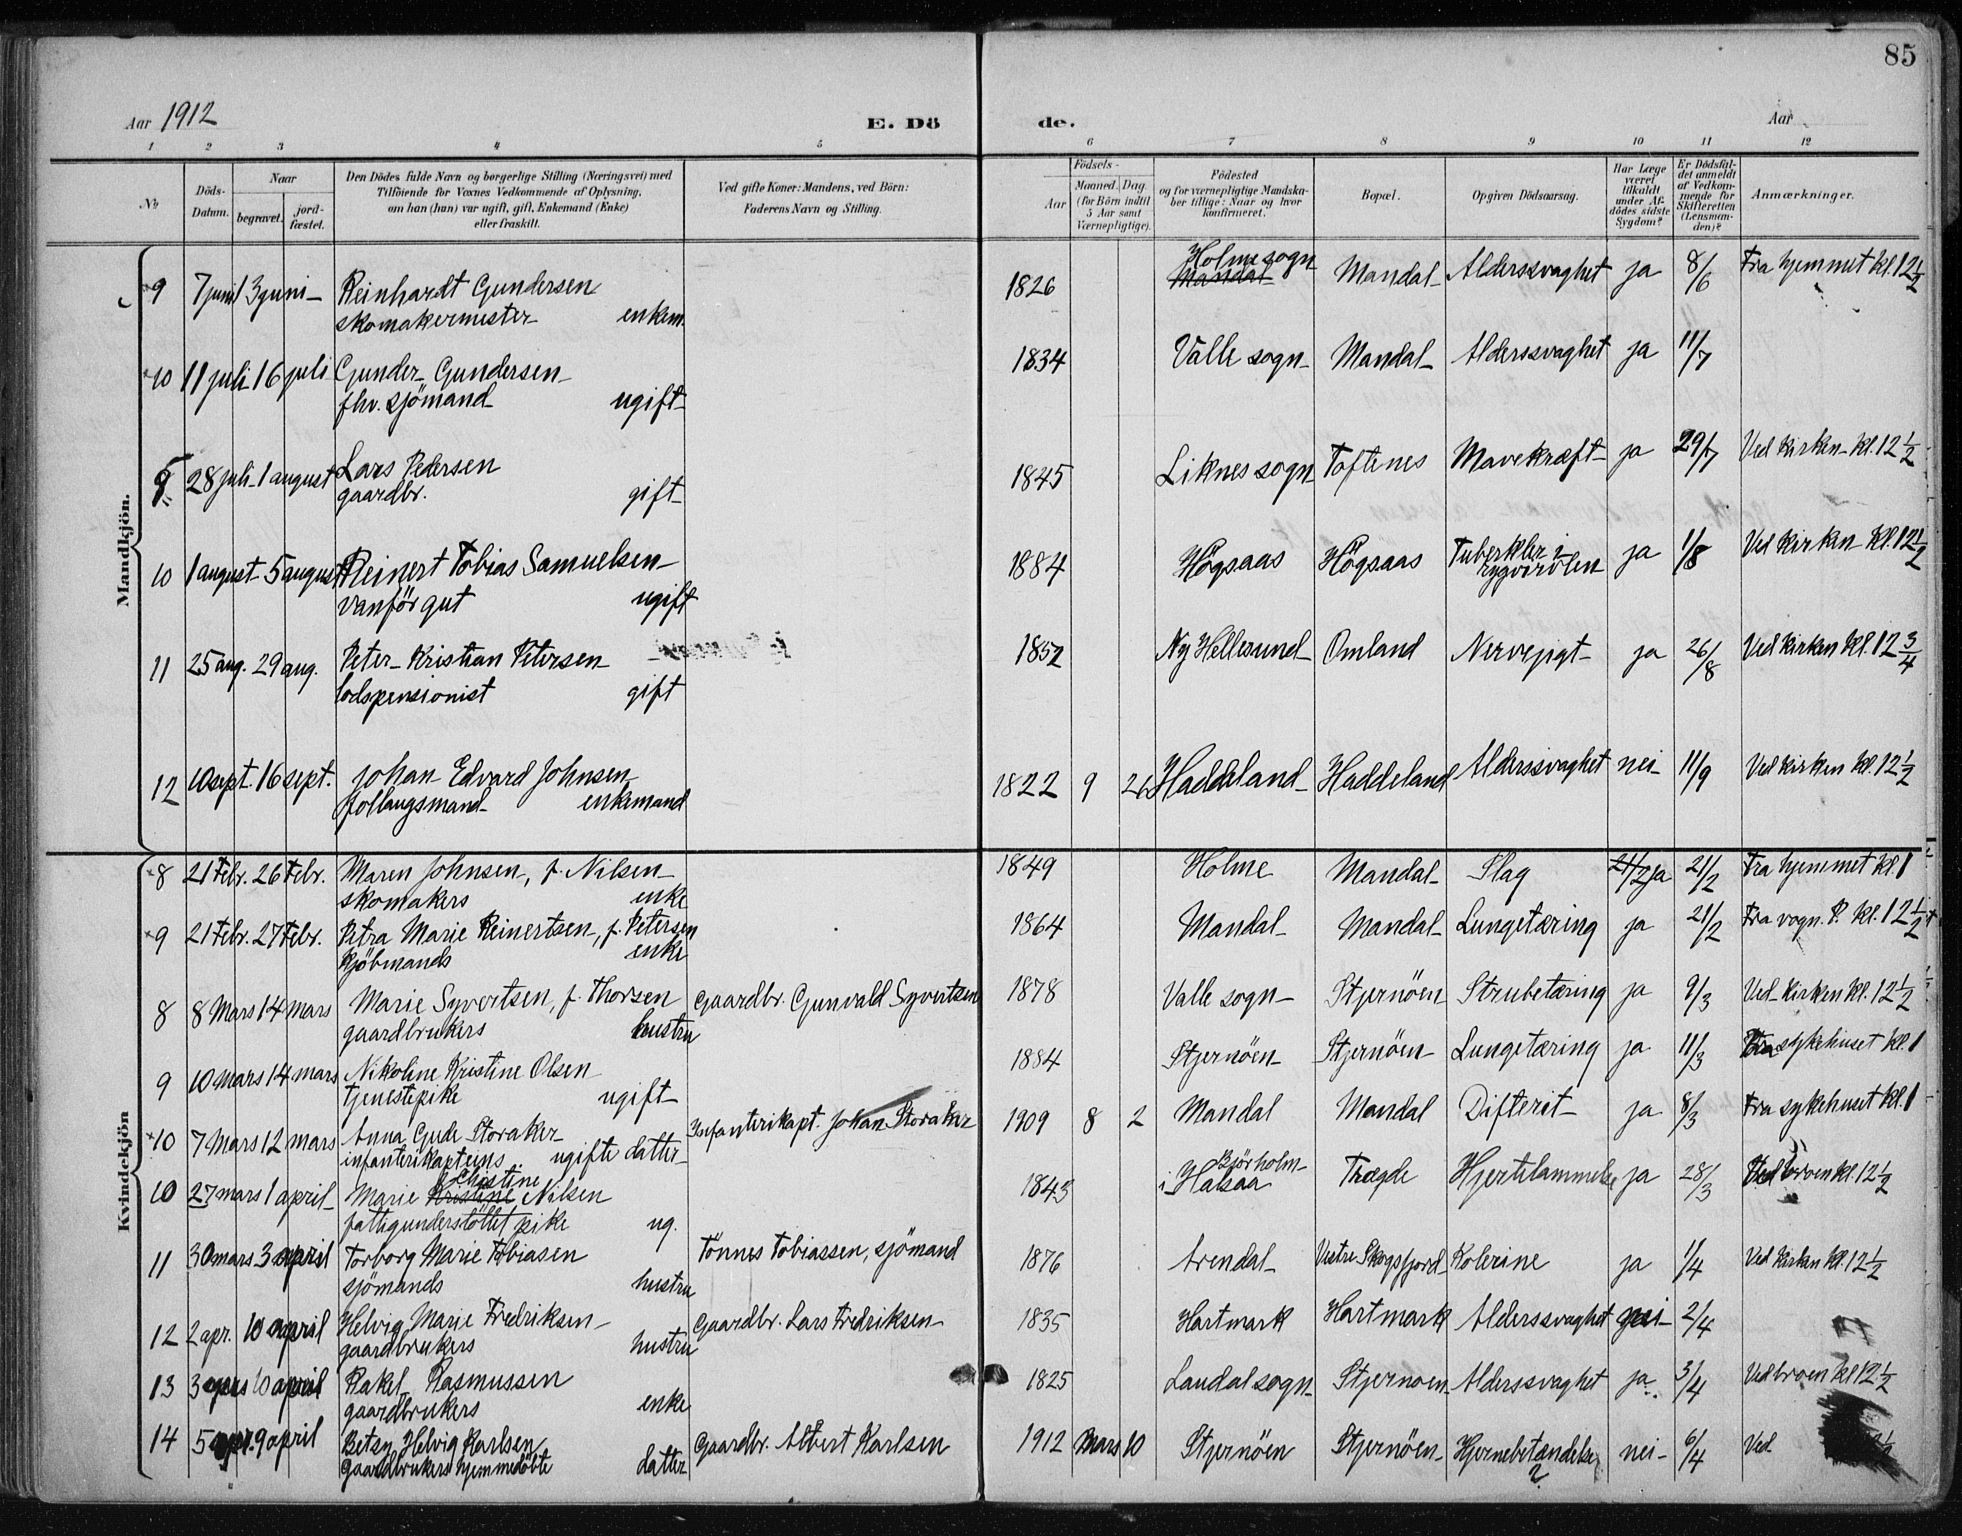 85
Aar 1912
E. Dö
de.
Aar
1 2 3 4 5 6 7 8 9 10 11 12
No
Döds-Datum.
Naar
begravet.
jord-fæstet.
Den Dödes fulde Navn og borgerlige Stilling (Næringsvei) med
Tilföiende for Voxnes Vedkommende af Oplysning,
om han (hun) var ugift, gift, Enkemand (Enke)
eller fraskilt.
Ved gifte Koner: Mandens, ved Börn:
Faderens Navn og Stilling.
Födsels-
Aar
Maaned. Dag
(for Börn indtil
5 Aar samt
Værnepligtige).
Födested
og for værnepligtige Mandska-
ber tillige: Naar og hvor
konfirmeret.
Bopæl.
Opgiven Dödsaarsag.
Har Læge
været
tilkaldt
under Af-
dödes sidste
Sygdom?
Er Dödsfal-
det anmeldt
af Vedkom-
mende for
Skifteretten
(Lensman-
den)?
Anmærkninger.
Mandkjön.
9 7 juni 13 juni Reinhardt Gundersen 1826 Holme sogn Mandal Mandal Alderssvaghet ja 8/6 Fra hjemmet kl. 12 1/2
skomakermester enkem.
10 11 juli 16 juli Gunder Gundersen 1834 Valle sogn Mandal Alderssvaghet ja 11/7
fhv. sjömand ugift
28 juli 1 august Lars Pedersen 1845 Liknes sogn Toftenes Mavekræft ja 29/7 Ved kirken kl. 12 1/2
gaardbr. gift
10 1 august 5 august Reinert Tobias Samuelsen 1884 Högsaas Högsaas Tuberkler i rygvirvlen ja 1/8 Ved kirken kl. 12 1/2
vanför gut ugift
11 25 aug. 29 aug. Peter Kristian Petersen 1852 Ny Hellesund Omland Nervegigt ja 26/8 Ved kirken kl. 12 3/4
lodspensionist gift
12 10 sept. 16 sept. Johan Edvard Johnsen 1822 9 26 Haddeland Haddeland Alderssvaghet nei 11/9 Ved kirken kl. 12 1/2
follaugsmand enkemand
Kvindekjön
8 21 Febr. 26 Febr. Maren Johnsen, f. Nilsen 1849 Holme Mandal Slag 21/2 ja 21/2 Fra hjemmet kl. 1
skomakers enke
9 21 Febr. 27 Febr. Petra Marie Reinertsen, f. Petersen 1864 Mandal Mandal Lungetæring ja 21/2 Fra vogn. P. kl. 12 1/2
kjöbmands enke
8 8 Mars 14 mars Marie Syvertsen, f. Thorsen Gaardbr. Gunvald Syvertsen 1878 Valle sogn Stjernöen Strubetæring ja 9/3 Ved kirken kl. 12 1/2
gaardbrukers hustru
9 10 mars 14 mars Nikoline Kristine Olsen 1884 Stjernöen Stjernöen Lungetæring ja 11/3 Fra sykehuset kl. 1
tjenestepike ugift
10 7 Mars 12 mars Anna Gude Storaker Infanterikapt. Johan Storaker 1909 8 2 Mandal Mandal Difterit ja 8/3 Fra sykehuset kl. 1
infanterikapteins ugifte datter
10 27 mars 1 april Marie Kristine Chistine Nilsen 1843 Bjørholm i Halsaa Trægde Hjertelammelse ja 28/3 Ved broen kl. 12 1/2
fattigunderstöttet pike ug.
11 30 mars 3 april Torborg Marie Tobiasen Tönnes Tobiassen, sjömand 1876 Arendal Vestre Skogsfjord Kolerine ja 1/4 Ved kirken kl. 12 1/2
sjömands hustru
12 2 apr. 10 april Helvig Marie Fredriksen Gaardbr. Lars Fredriksen 1835 Hartmark Hartmark Alderssvaghet nei 2/4
gaardbrukers hustru
13 3 10 april Rakel Rasmussen 1825 Laudal sogn Stjernoen Alderssvaghet ja 3/4 Ved broen kl 12 1/2
gaardbrukers enke
14 5 apr. 9 april Betsy Helvig Karlsen Gaardbr. Albert Karlsen 1912 Mars 10 Stjernöen Stjernöen Hjernebetændelse ? nei 6/4 Ved
gaardbrukers hjemmedöbte datter